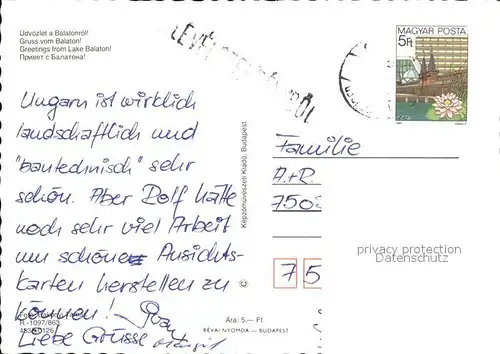 Üdvözlet a Balatonról!
Gruss vom Balaton!
Greetings from Lake Balaton!
Привет с Балатона!
MAGYAR POSTA
5Ft
Ungarn ist wirklich
landschaftlich und
"bautechnisch" sehr
schön. Aber Dolf hätte
noch sehr viel Arbeit
um schöne Ansichts-
karten herstellen zu
können!
Liebe Grüsse
R.-1097/863
Képzőművészeti Kiadó, Budapest
Ára: 5,– Ft
RÉVAI NYOMDA — BUDAPEST
Familie
A.+R.
750
75
privacy protection
Datenschutz